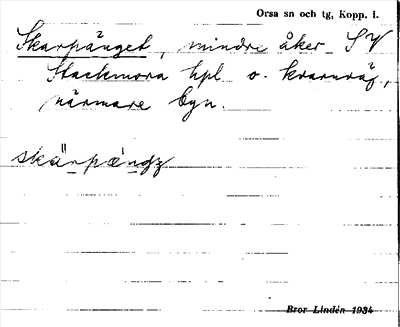 Orsa sn och tg, Kopp. l.
Skarpänget, mindre åker SV
Stackmora hpl o. kvarnväg,
närmare byn.
skärpæ̀ngẓ
Bror Lindén 1934